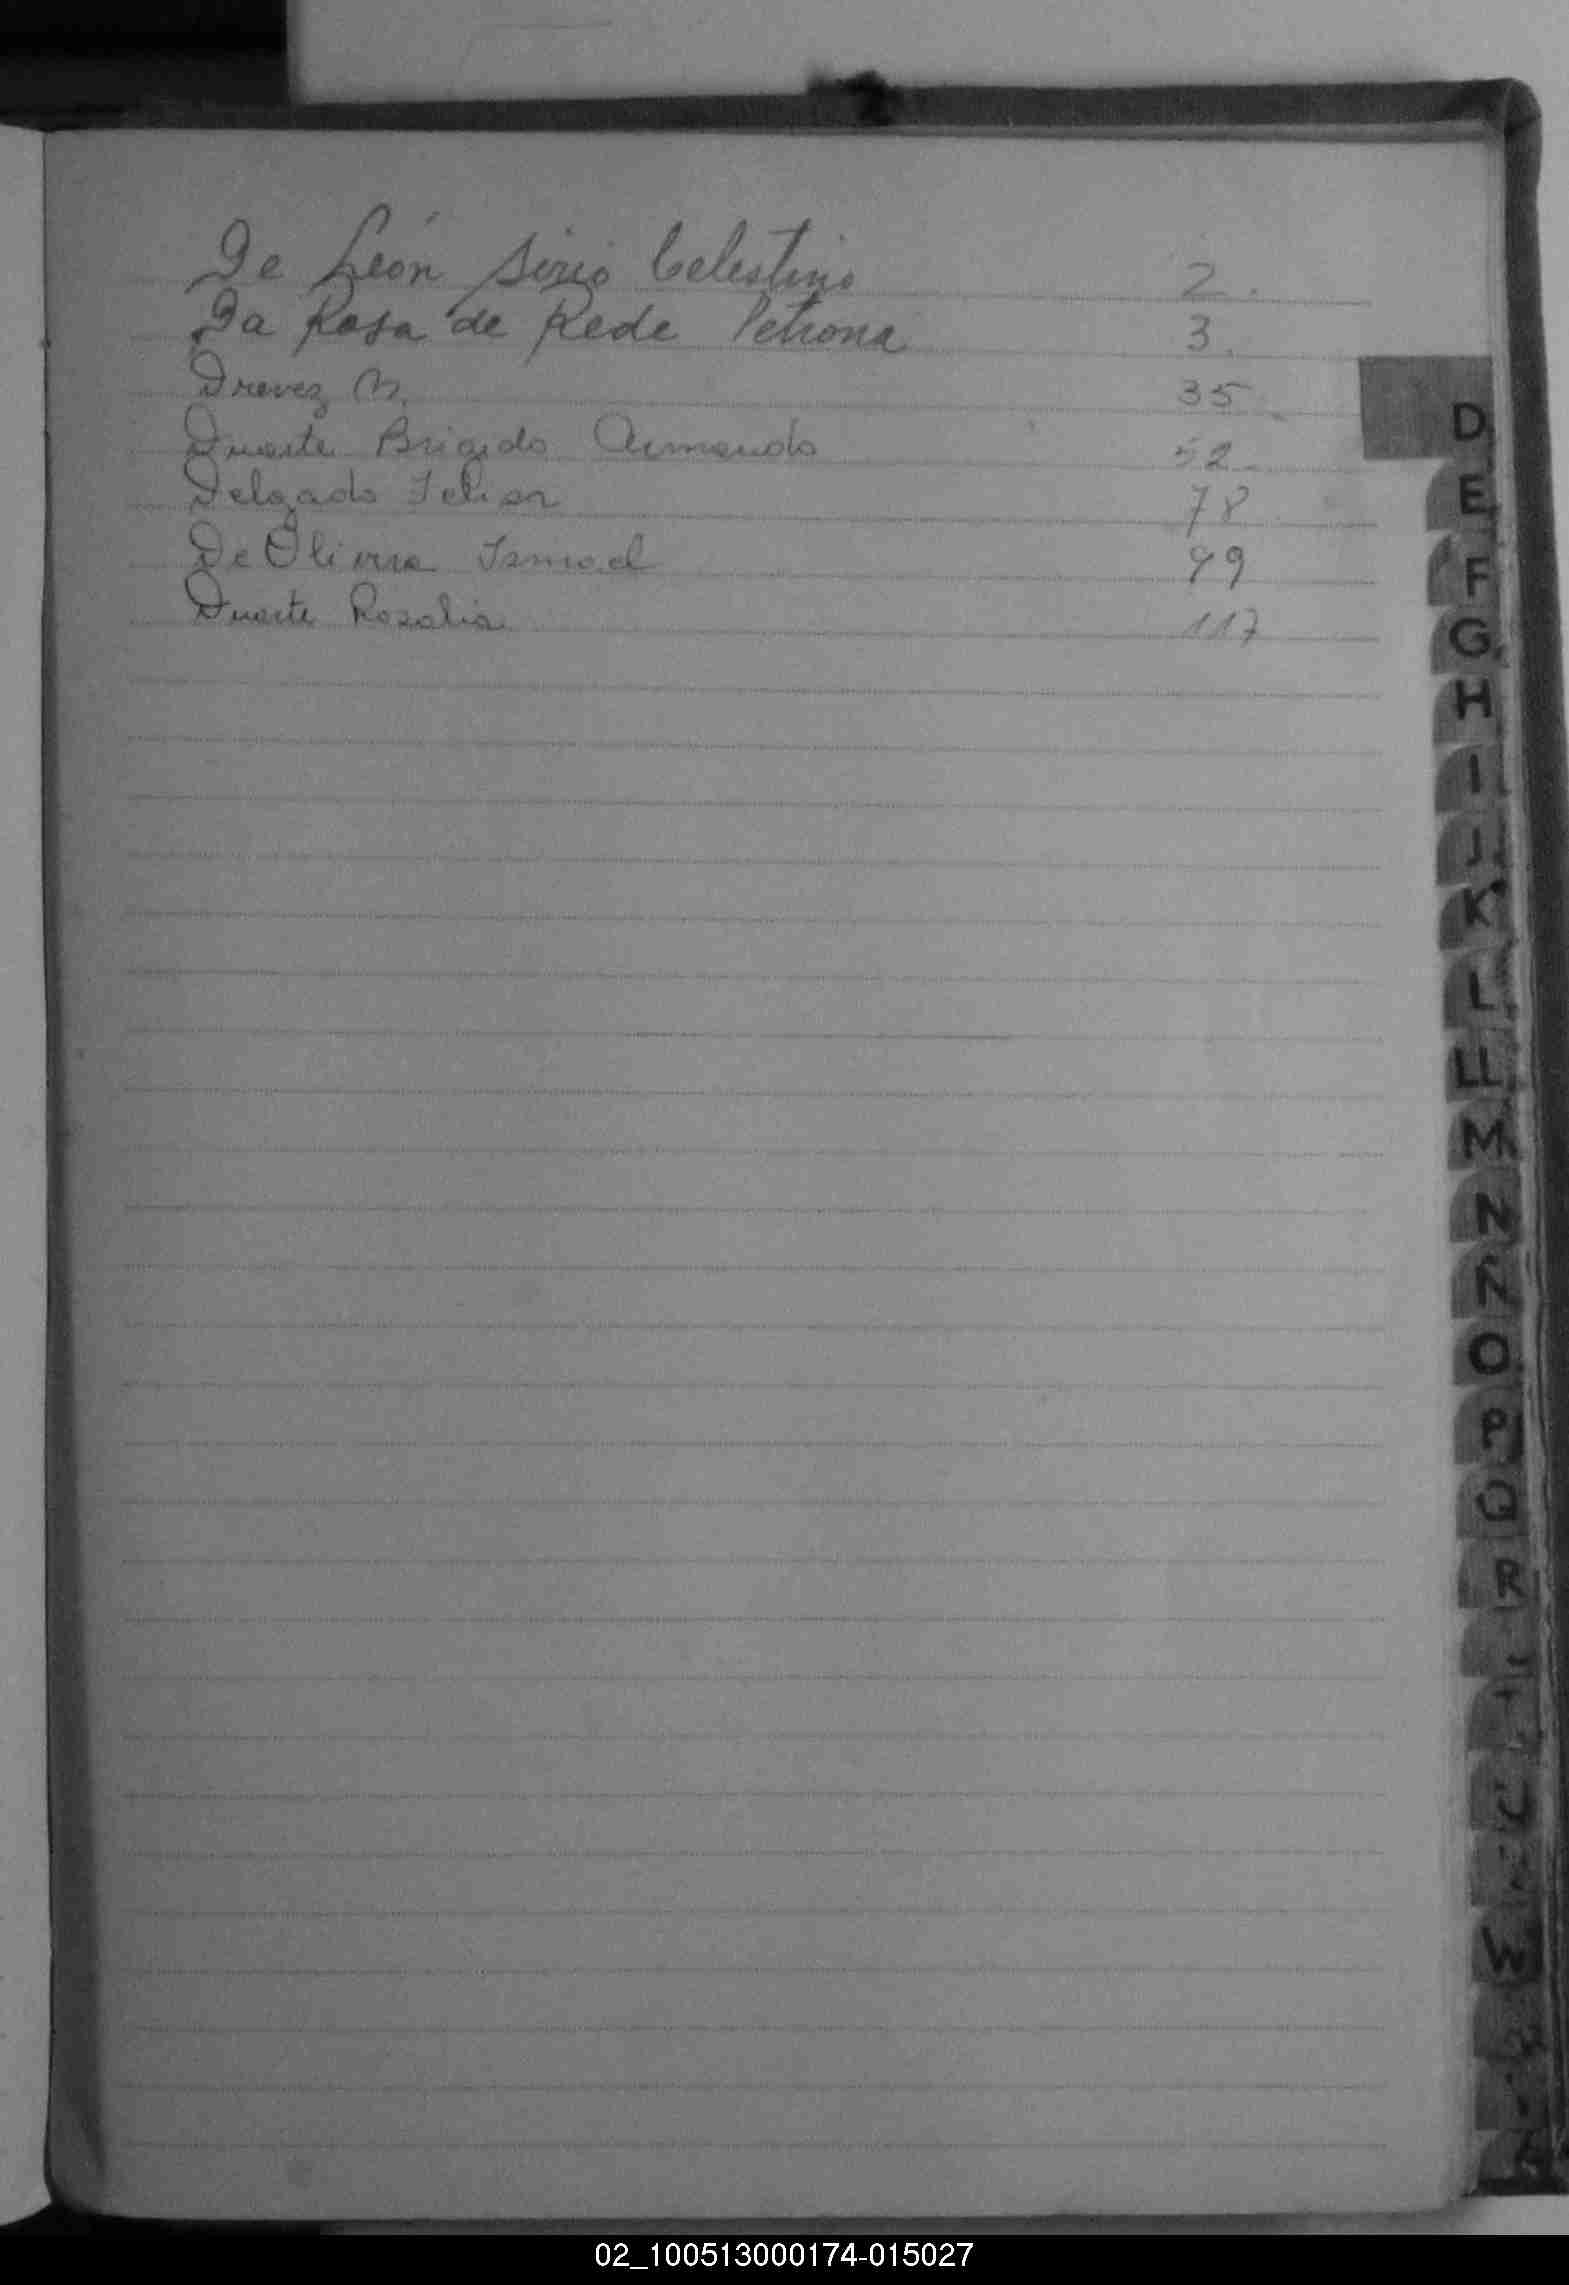 De León Sirio Celestino 2.
Da Rosa de Rede Petrona 3.
Drevez M. 35
Duarte Brigido Armando 52
Delgado 78
De Ismael 99
Duarte Rosalia 117
D
E
F
G
H
I
J
K
L
LL
M
N
Ñ
O
P
Q
R
T
U
W
02_100513000174-015027